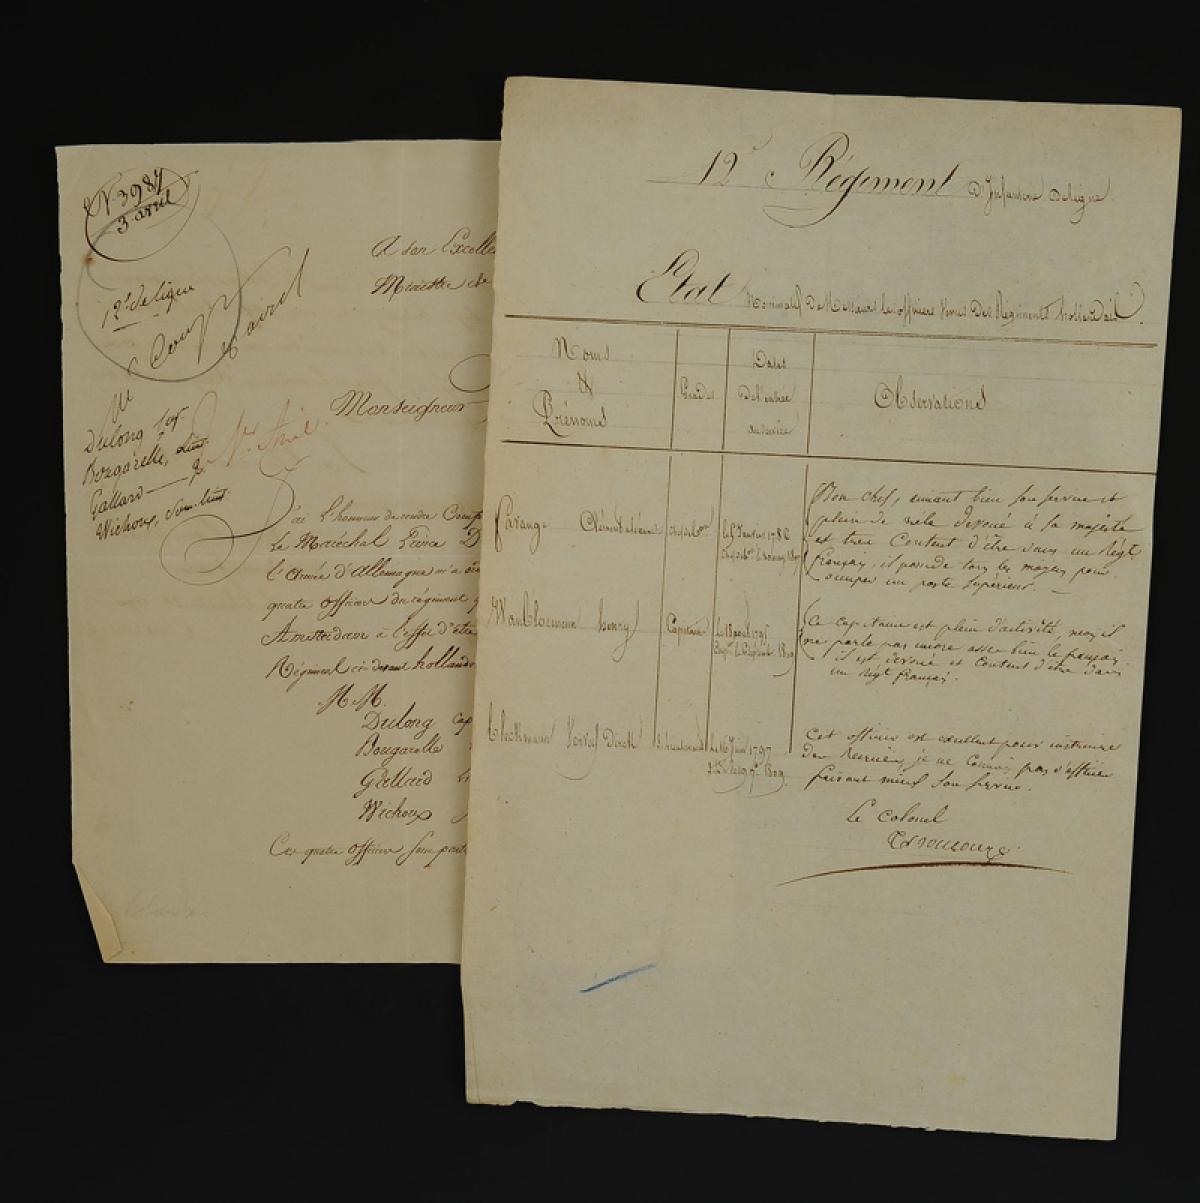 N. 3987
3. avril
12e de ligne
avril
Dulong
Bozgarelle, Lieut.
Gallard
Wichoux, Sous lieut.
A son Excelle
Ministre de
Monseigneur
J'ai l'honneur de rendre Comp
Le Maréchal Prince D
l'Armée d'Allemagne m'a
quatre officiers du régiment
Amsterdam à l'effet d'être
Régiment ci-devant hollando
M.M.
Dulong cap
Bougarelle
Gallard
Wichoux
Ces quatre officiers sont parti
12e Régiment D'Infanterie De Ligne
Etat Nominatif De Messieurs les officiers Venus Des Régiments hollandais.
Noms
&
Prénoms
Grades
Dates
De l'entrée
au service
Observations
Clément
le 5 Janvier 1786
Bon chef, aimant bien son service et
plein de zèle devoué à sa majesté
et très Content d'être dans un Régt
français, il possede tous les moyens pour
occuper un poste Supérieur.
henry
Capitaine
le 18 août 1795
1809
Ce capitaine est plein d'activité, mais il
ne parle pas encore assez bien le français
il est devoué et Content d'être dans
un Régt français.
S. lieutenant
le 16 Juin 1797
1809
Cet officier est excellent pour instruire
Des Recrues, je ne Connais pas d'officier
faisant mieux Son Service.
Le Colonel